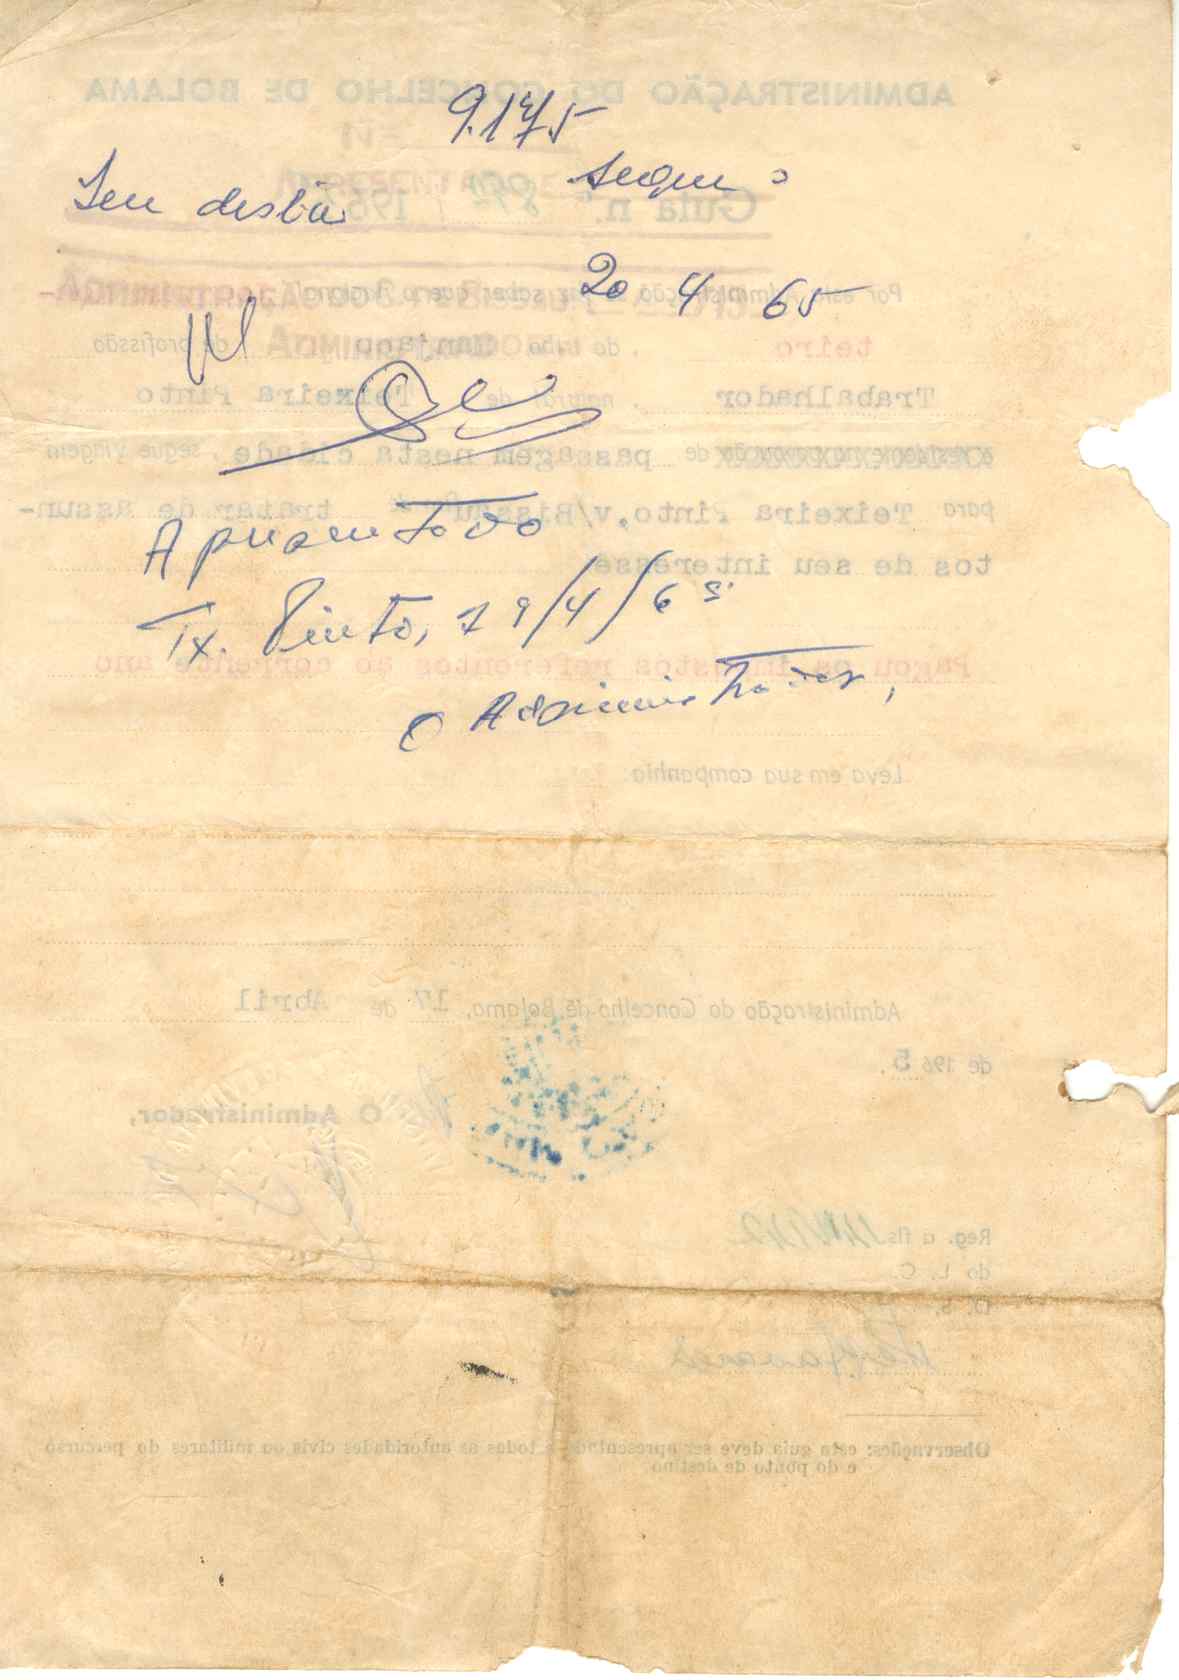 9.175
Segue o
Seu destino
20 4 65
Apresentado
Tx. Pinto, 19/4/65.
O Administrador,
ADMINISTRAÇÃO DO CONCELHO DE BOLAMA
Guia n.º 196
Por esta Administração se faz saber que o
teiro , da tribo Manjaco de profissão
Trabalhador , natural de Teixeira Pinto
e residente na povoação de passagem nesta cidade , segue viagem
para Teixeira Pinto,v/Bissau tratar de assun-
tos de seu interesse
Pagou os impostos referentos ao corrente ano
Leva em sua companhia:
Administração do Concelho de Bolama, 17 de Abril
de 1965.
O Administrador,
Reg. a fls
do L. C.
D. S.
Observações: esta guia deve ser apresentada a todas as autoridades civis ou militares do percurso
e do ponto de destino.